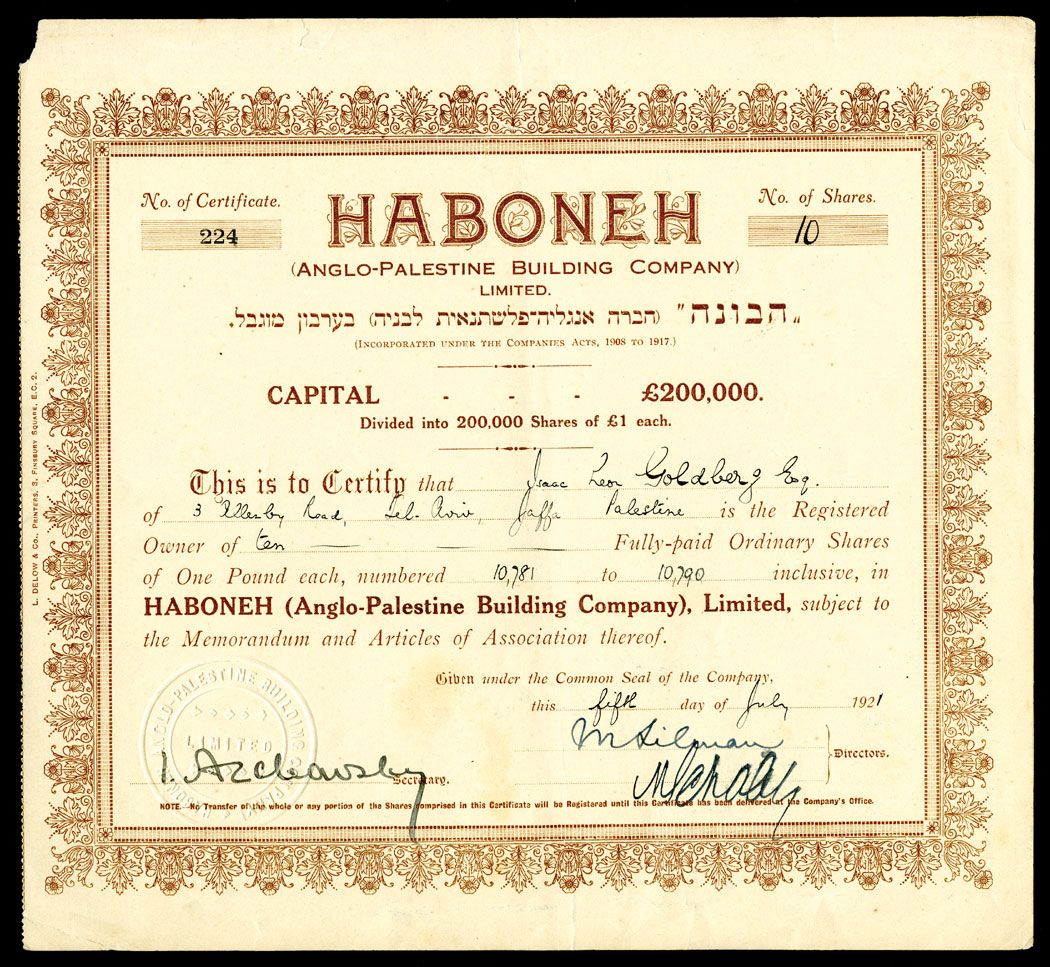 No. of Certificate.
224
HABONEH
No. of Shares.
10
(ANGLO-PALESTINE BUILDING COMPANY)
LIMITED.
„הבונה" (חברה אנגליה־פלשתנאית לבניה) בערבון מוגבל.
(INCORPORATED UNDER THE COMPANIES ACTS, 1908 TO 1917.)
CAPITAL - - - £200,000.
Divided into 200,000 Shares of £1 each.
This is to Certify that Isaac Leon Goldberg Esq.
of 3 Allenby Road, Tel-Aviv, Jaffa Palestine is the Registered
Owner of ten Fully-paid Ordinary Shares
of One Pound each, numbered 10,781 to 10,790 inclusive, in
HABONEH (Anglo-Palestine Building Company), Limited, subject to
the Memorandum and Articles of Association thereof.
Given under the Common Seal of the Company,
this fifth day of July 1921
ANGLO-PALESTINE BUILDING
LIMITED
Directors.
Secretary.
NOTE.—No Transfer of the whole or any portion of the Shares comprised in this Certificate will be Registered until this Certificate has been delivered at the Company's Office.
L. DELOW & CO., PRINTERS, 3, FINSBURY SQUARE, E.C. 2.